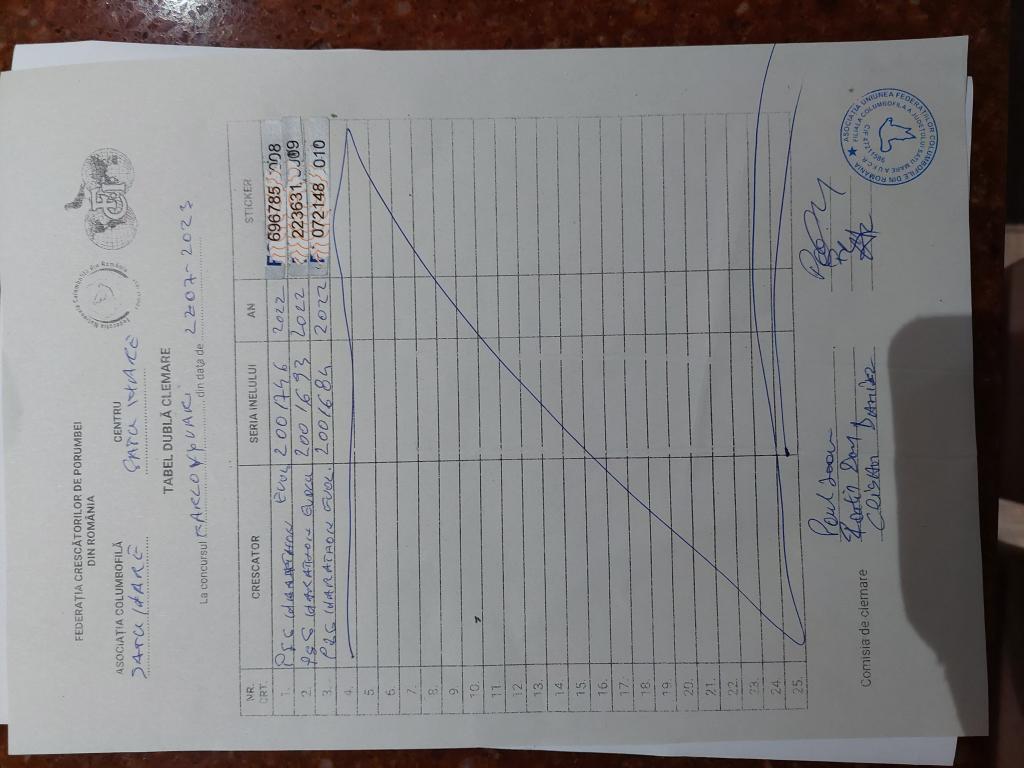 FEDERAȚIA CRESCĂTORILOR DE PORUMBEI
DIN ROMÂNIA
ASOCIAȚIA COLUMBOFILĂ
SATU MARE
CENTRU
SATU MARE
TABEL DUBLĂ CLEMARE
La concursul KARLOVY VARI din data de 2207-2023
NR. CRT. CRESCATOR SERIA INELULUI AN STICKER
1. P&S MARATHON 2001746 2022 696785 008
2. P&S MARATHON 2001693 2022 223631 009
3. P&S MARATHON EVOL. 2001684 2022 072148 010
4.
5.
6.
7.
8.
9.
10.
11.
12.
13.
14.
15.
16.
17.
18.
19.
20.
21.
22.
23.
24.
25.
Comisia de clemare
Crisan
ASOCIAȚIA UNIUNEA FEDERAȚIILOR COLUMBOFILE DIN ROMÂNIA
FILIALA COLUMBOFILA A JUDEȚULUI SATU MARE A U.F.C.R.